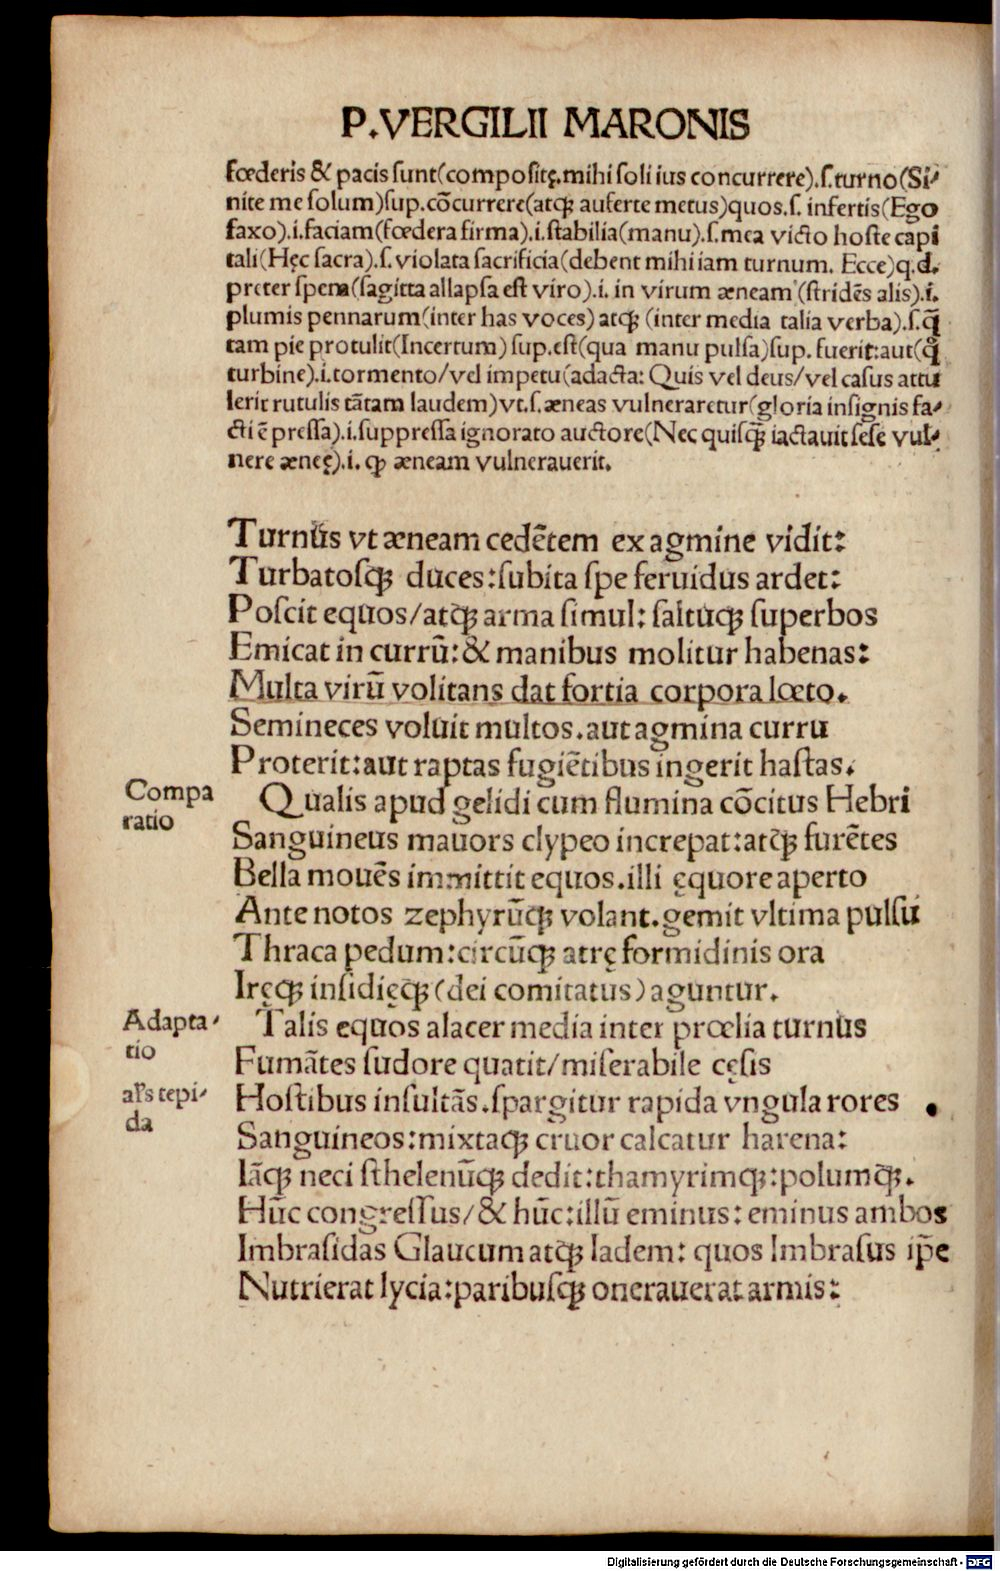 P.VERGILII MARONIS
fœderis & pacis sunt(compositę.mihi soli ius concurrere).ſ.turno(Si⸗
nite me ſolum)ſup.cōcurrere(atqꝫ auferte metus)quos.ſ. infertis(Ego
faxo).i.faciam(fœdera firma).i.ſtabilia(manu).ſ.mea victo hoſte capi
tali(Hęc ſacra).ſ.violata ſacrificia(debent mihi iam turnum. Ecce)q.d.
preter ſpem(ſagitta allapſa eſt viro).i. in virum æneam (ſtridēs alis).i.
plumis pennarum(inter has voces) atqꝫ (inter media talia verba).ſ.q̄
tam pie protulit(Incertum) ſup.eſt(qua manu pulſa)ſup. fuerit:aut(q̄
turbine).i.tormento/vel impetu(adacta: Quis vel deus/vel caſus attu
lerit rutulis tātam laudem)vt.ſ.æneas vulneraretur(gloria inſignis fa⸗
cti ē preſſa).i.ſuppreſſa ignorato auctore(Nec quiſꝗ̄ iactauit ſeſe vul⸗
nere æneę).i. ꝙ æneam vulnerauerit.
Turnus vt æneam cedētem ex agmine vidit:
Turbatoſqꝫ duces:ſubita ſpe feruidus ardet:
Poſcit equos/atqꝫ arma ſimul: ſaltuqꝫ ſuperbos
Emicat in currū:& manibus molitur habenas:
Multa virū volitans dat fortia corpora lœto.
Semineces voluit multos.aut agmina curru
Proterit:aut raptas fugiētibus ingerit haſtas.
Compa
ratio
Qualis apud gelidi cum flumina cōcitus Hebri
Sanguineus mauors clypeo increpat:atqꝫ furētes
Bella mouēs immittit equos.illi ęquore aperto
Ante notos zephyrūqꝫ volant.gemit vltima pulſu
Thraca pedum:circūqꝫ atrę formidinis ora
Iręqꝫ inſidięqꝫ(dei comitatus)aguntur.
Adapta⸗
tio
Talis equos alacer media inter prœlia turnus
Fumātes ſudore quatit/miſerabile cęſis
al's tepi⸗
da
Hoſtibus inſultās.ſpargitur rapida vngula rores
Sanguineos:mixtaqꝫ cruor calcatur harena:
Iāqꝫ neci ſthelenūqꝫ dedit:thamyrimqꝫ:polumqꝫ.
Hūc congreſſus/& hūc:illū eminus: eminus ambos
Imbraſidas Glaucum atqꝫ ladem: quos Imbraſus ip̄e
Nutrierat lycia:paribuſqꝫ onerauerat armis:
Digitalisierung gefördert durch die Deutsche Forschungsgemeinschaft - DFG